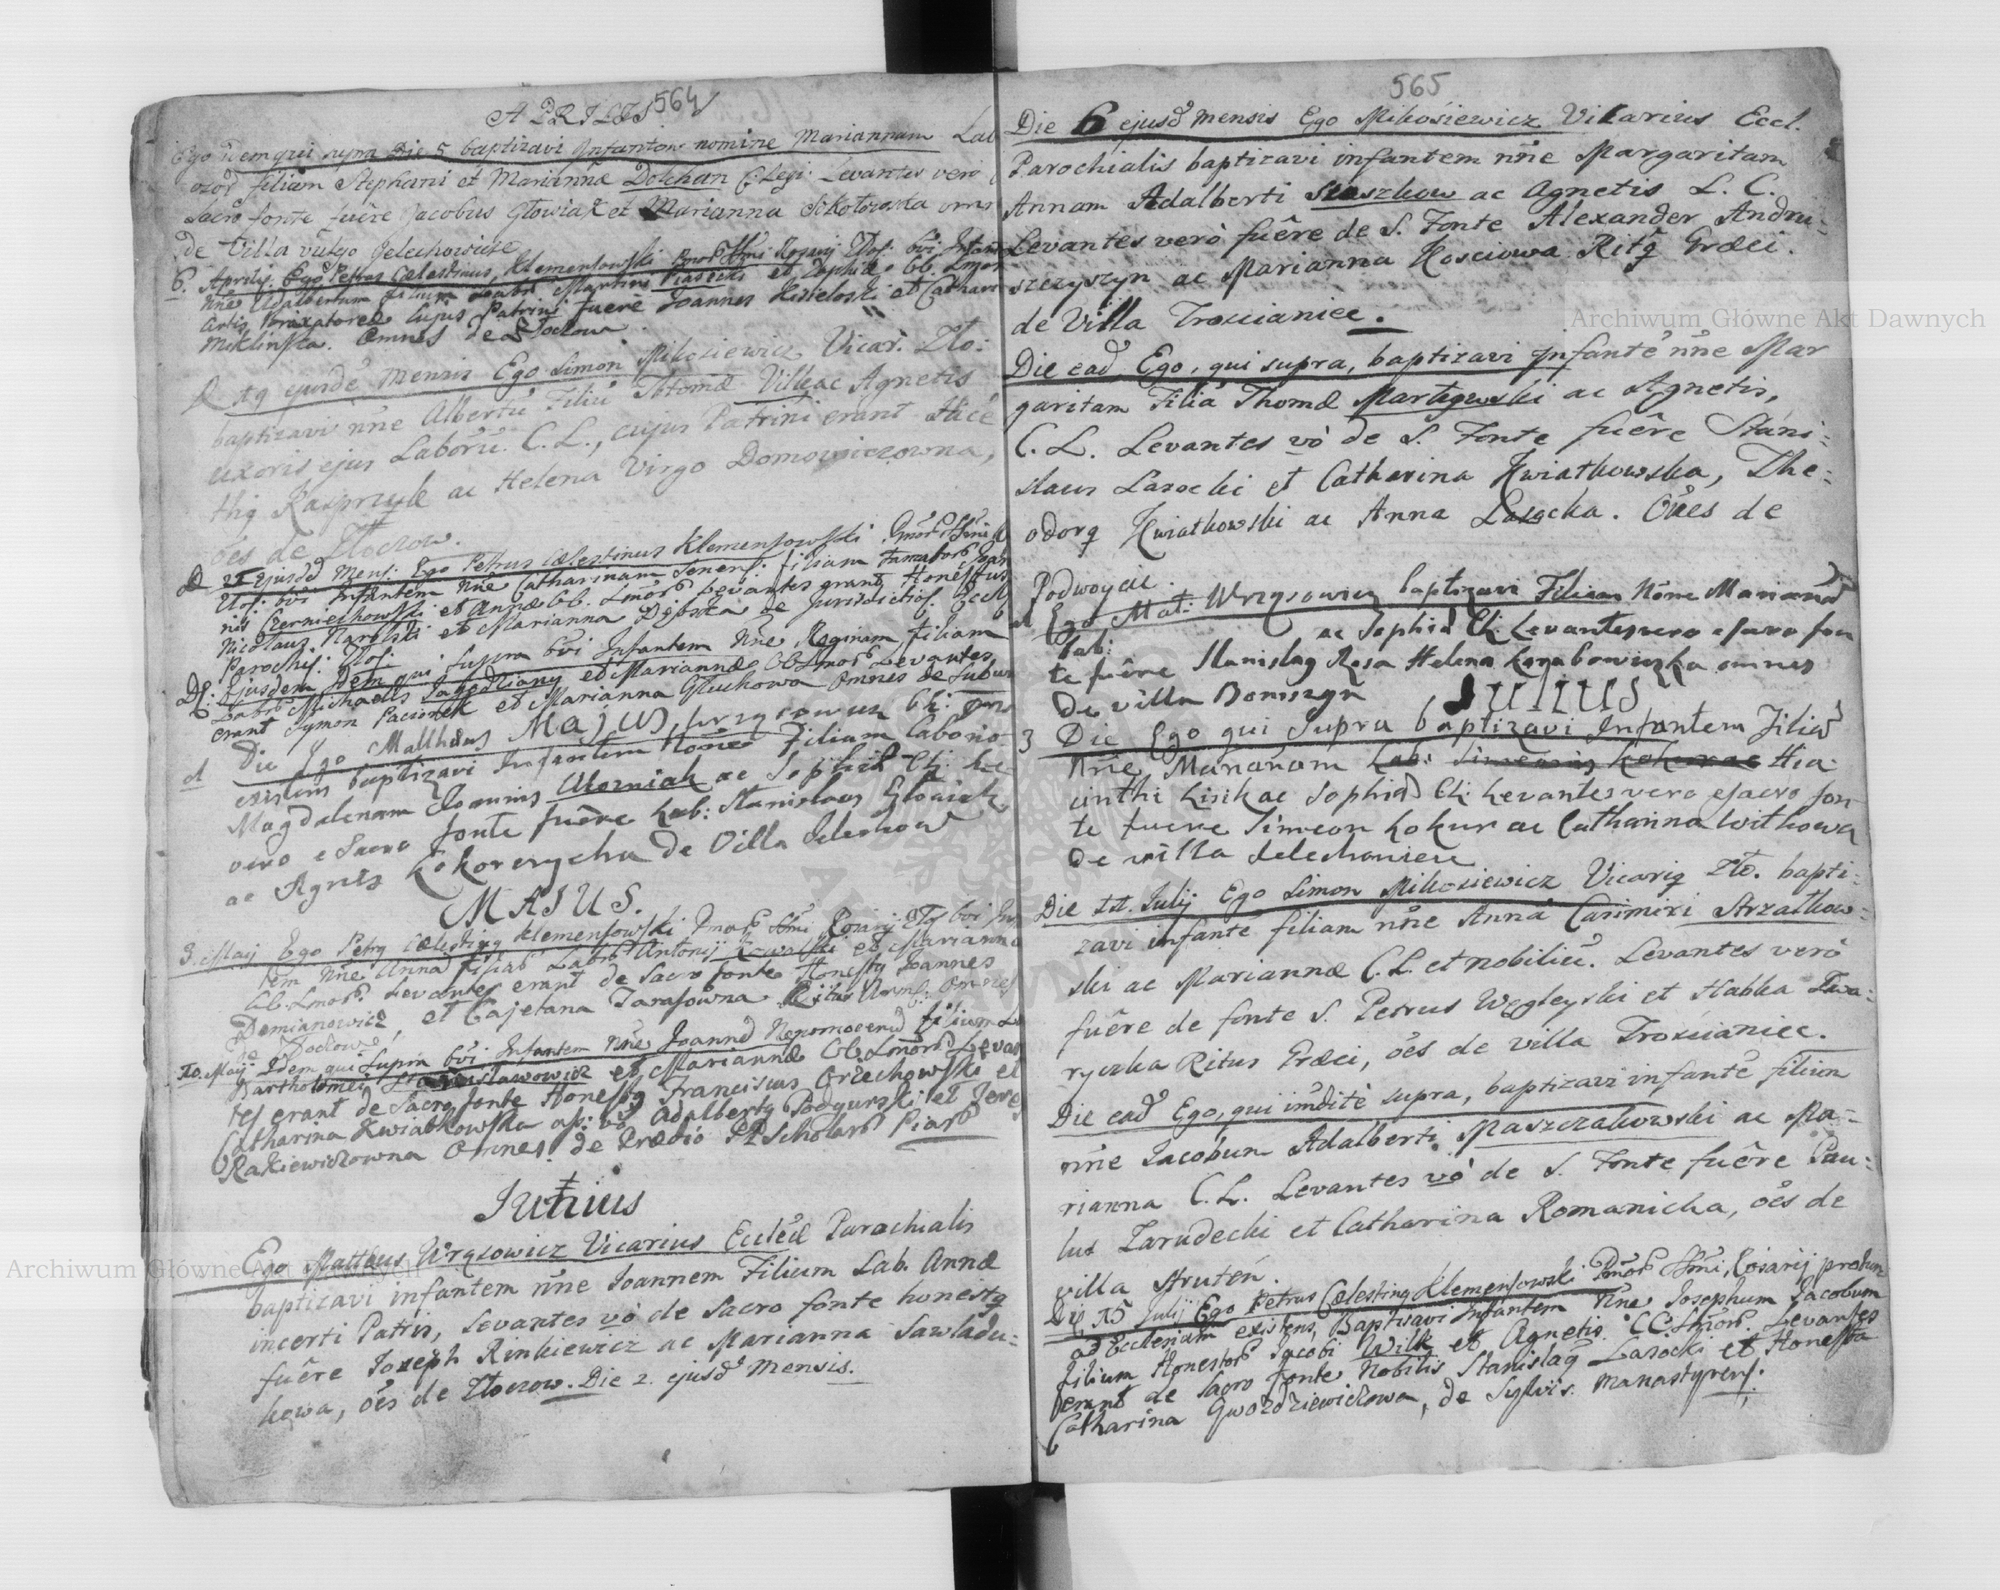 APRILIS 564
Ego idem qui supra Die 5 baptizavi Infantem nomine Mariannam Lab
filiam Stephani et Mariannæ Dolchan C: Legi: Levantes vero
Sacro fonte fuêre Jacobus Głowiak et Marianna Sikotowska omn
de Villa vulgo Jelechowice
6. Aprilis. Ego Petrus Cælestinus Klemensowski Rosarij Zloč: bvi Infan
nne Adalbertum filium Martini Piasecki et Sophiæ
Artis Braxatoreæ cujus Patrini fuêre Joannes Kisieloski et Cathari
Miklinska. Omnes de Złoczow
D 19 ejusdē Mensis Ego Simon Mikosiewicz Vicar. Zło:
baptizavi nn̄e Albertū Filiū Thomæ Vilk ac Agnetis
uxoris ejus Laborū C. L., cujus Patrini erant
Kasprzyk ac Helena Virgo Domowiczowna,
oēs de Złoczow.
D 21 Ejusdd Mens: Ego Petrus Cælestinus Klemensowski
Zloč: bvi Infantem nn̄e Catharinam filiam Joan
nis Czerniechowski et Annæ Levantes erant Honestus
Nicolaus Narolski et Marianna Dębska de Jurisdictio: Eccl
Paroch: Zloč:
D: Ejusdem Idem qui supra bvi Infantem nn̄e Reginam filiam
Michaelis Jagodziany et Mariannæ Levantes
erant Symon Paciorek et Marianna Gluchowa omnes de Subur
MAJUS
d Die Ego Matthæus Wrzęsowicz
existens baptizavi Infantem Nōne Filiam Laborio
Magdalenam Joannis Wozniak ac Sophiæ
vero e Sacro fonte fuêre Lab: Stanislaus Glowiak
ac Agnes Kokorczycha de Villa Jelechow
MAJUS.
3. Maij Ego Petrg Cælesting Klemensowski Rosarij Zlo bvi In
tem nn̄e Anna filiam Antonij Kowalski et Marianna
Levantes erant de Sacro fonte Honestg Joannes
Demianowicz, et Cajetana Tarasowna Omnes
de Złoczow
10. Maij Idem qui supra bvi Infantem nn̄e Joannē Nepomocenū filium
Bartholomei Stanislawowicz et Mariannæ Levan
tes erant de Sacro fonte Honestg Franciscus Orzechowski et
Catharina Kwiatkowska Adalbertg Podgurski et Tere
Rakiewiczowna Omnes de Prædio Scholar Piar
Junius
Ego Mattheus Wrzęsowicz Vicarius Parochialis
baptizavi infantem nn̄e Joannem Filium Lab. Annæ
incerti Patris, Levantes vò de Sacro fonte honestg
fuêre Joseph Rinkiewicz ac Marianna Sawladu-
kowa, oēs de Złoczow. Die 2. ejusd Mensis.
565
Die 6 ejusd mensis Ego Mikosiewicz Vikarius Eccl.
Parochialis baptizavi infantem nn̄e Margaritam
Annam Adalberti Staszkow ac Agnetis L. C.
Levantes verò fuêre de S. Fonte Alexander Andru-
szczyszyn ac Marianna Kosciowa Ritg Græci.
de Villa Troscianiec.
Die ead Ego, qui supra, baptizavi Infantē nn̄e Mar
garitam Filiā Thomæ Martyewski ac Agnetis,
C. L. Levantes vò de S. Fonte fuêre Stani:
slaus Lasocki et Catharina Kwiatkowska, The:
odorg Kwiatkowski ac Anna Lasocka. Oēs de
Podwoycie.
d Ego Mat: Wrzęsowicz baptizavi Filiam Nōne Mariannā
Lab: ac Sophiæ Levantes vero e sacro fon
te fuêre Stanislag Rosa Helena Korabowiczka omnes
De villa Boniszyn
JULIUS
3 Die Ego qui Supra baptizavi Infantem Filiā
Nn̄e Mariānam Lab: Simeonis Kokurac Hia
cinthi Lisik ac Sophiæ Levantes vero e sacro fon
te fuere Simeon Kokur ac Catharina Witkowa
De villa Jelechowiece
Die 11. Julij Ego Simon Mikosiewicz Vicarig Zło. bapti:
zavi infantē filiam nn̄e Annā Casimiri Strzałkow:
ski ac Mariannæ C. L. et nobiliū. Levantes verò
fuêre de fonte S. Petrus Węgleyski et Habka Twa:
ryczka Ritus Græci, oēs de villa Troscianiec.
Die ead Ego, qui im̄ditè supra, baptizavi infantē filium
nn̄e Jacobum Adalberti Maszczakowski ac Ma-
rianna C. L. Levantes vò de S. Fonte fuêre Pau:
lus Zarudecki et Catharina Romanicka, oēs de
villa Strutyn.
Die 15 Julij Ego Petrus Cælesting Klemensowski Rosarij
ad Ecclesiam existens, Baptizavi Infantem Nn̄e Josephum Jacobum
filium Honestor Jacobi Wilk et Agnetis. Levantes
erant de Sacro fonte Nobilis Stanislag Lasocki et Honesta
Catharina Gwozdziewiczowa, de Sylvis Manastyrens.
Archiwum Główne Akt Dawnych
Archiwum Główne Akt Dawnych